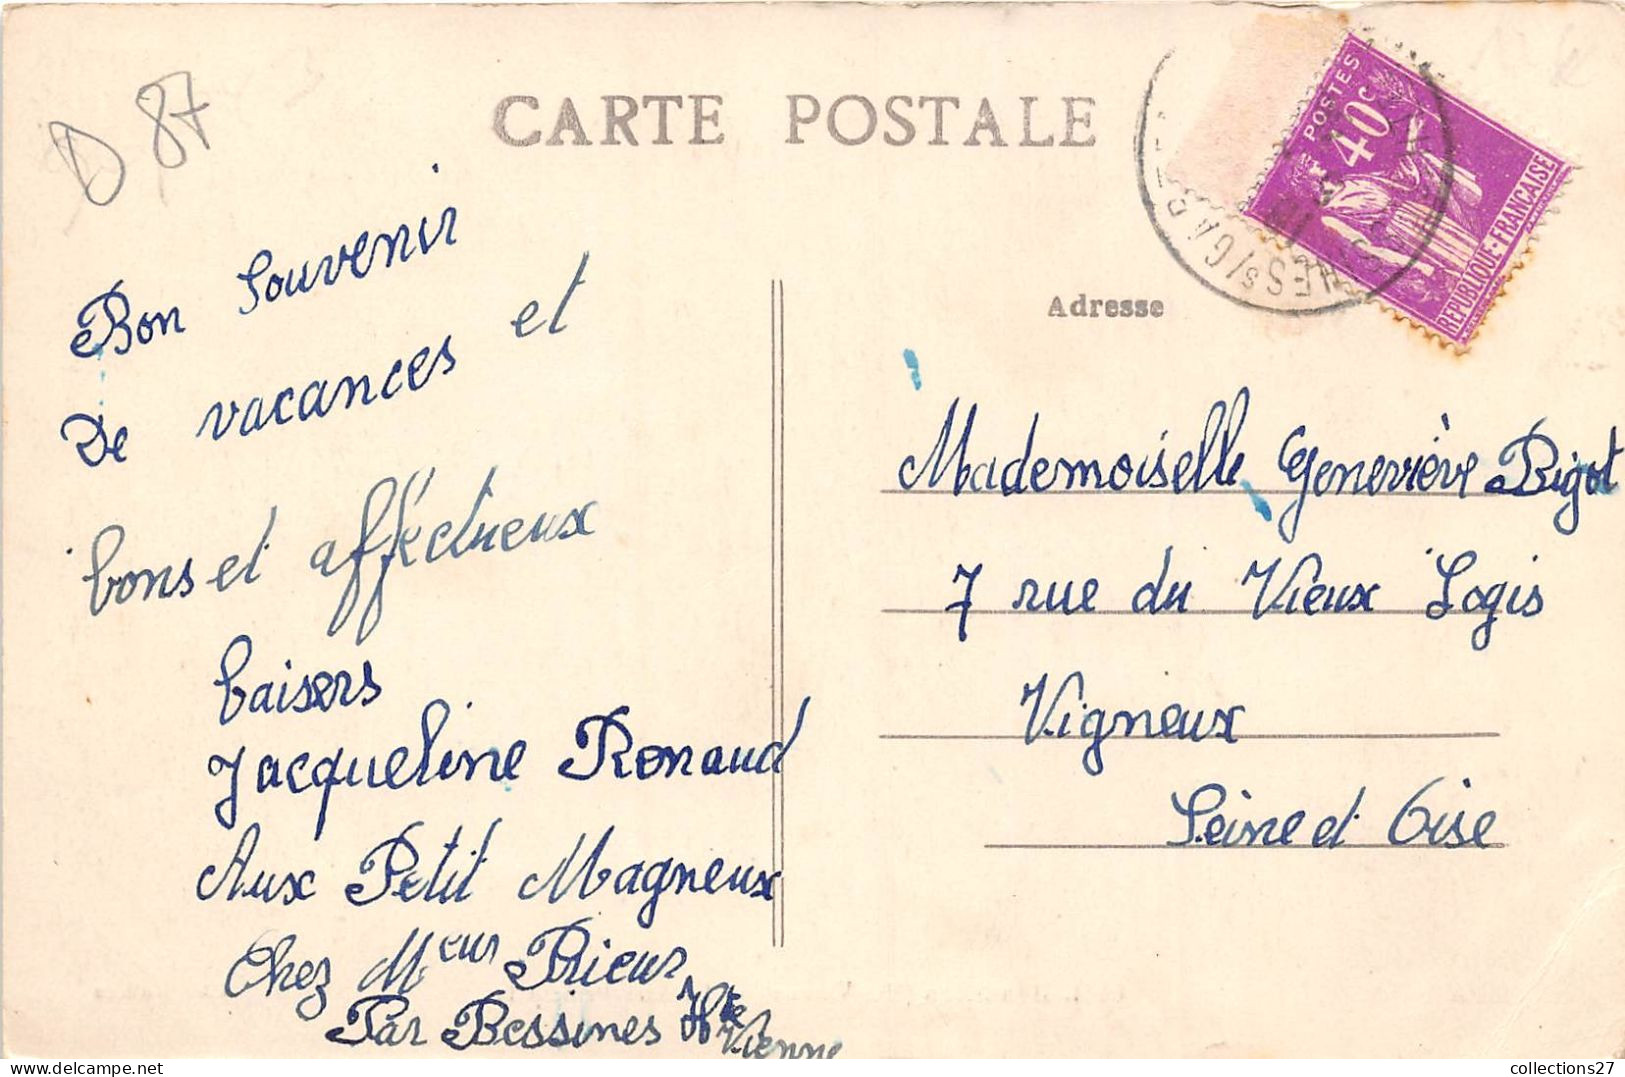 D 87
CARTE POSTALE
POSTES
40c
REPUBLIQUE-FRANÇAISE
Bon Souvenir
De vacances et
bons et afféctueux
baisers
Jacqueline Renaud
Aux Petit Magneux
Chez Meur Prieur
Par Bessines Hte
Vienne
Adresse
Mademoiselle Geneviève Bigot
7 rue du Vieux Logis
Vigneux
Seine et Oise
collections27